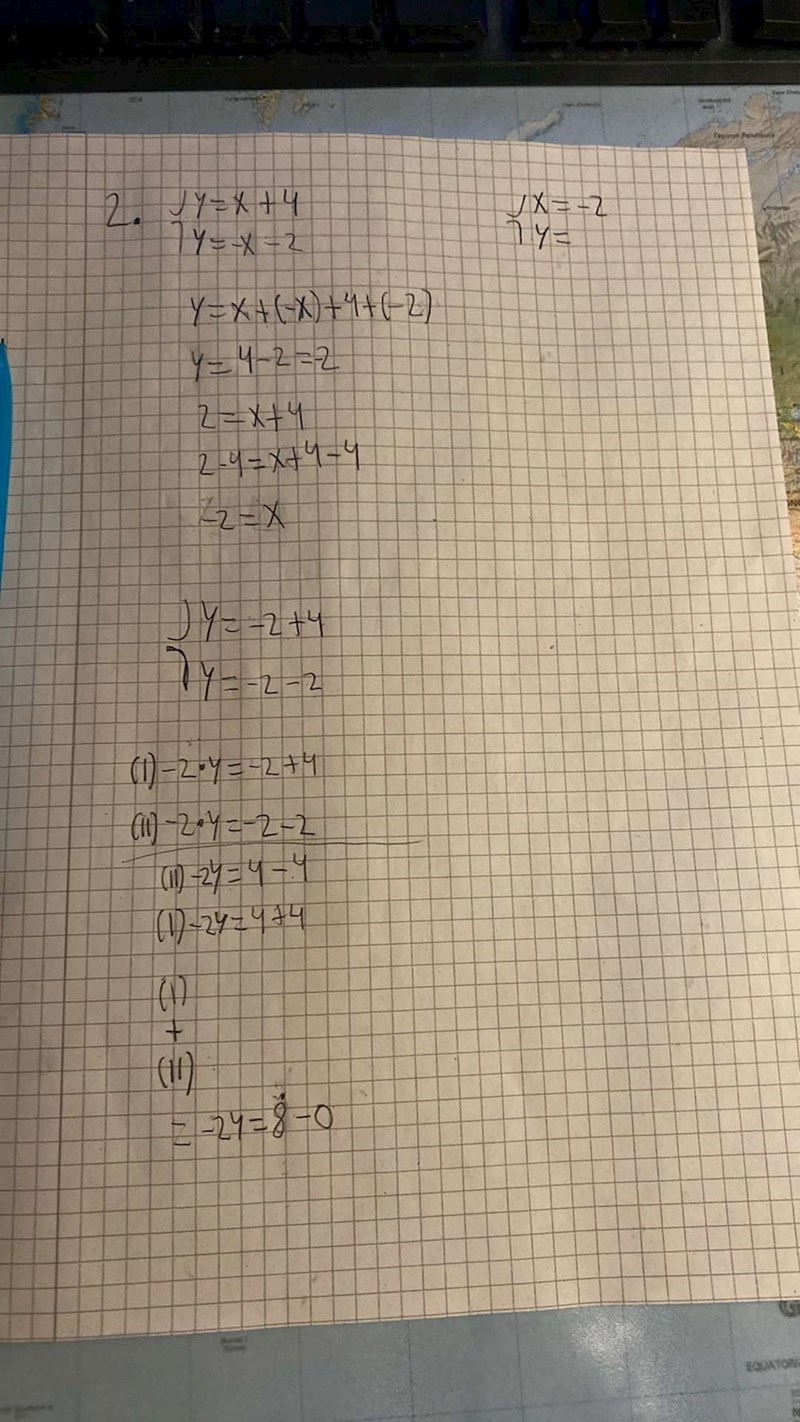 2. { y = x + 4
{ y = -x - 2
{ x = -2
{ y =
y = x + (-x) + 4 + (-2)
y = 4 - 2 = 2
2 = x + 4
2 - 4 = x + 4 - 4
-2 = x
{ y = -2 + 4
{ y = -2 - 2
(I) -2 • y = -2 + 4
(II) -2 • y = -2 - 2
(II) -2y = 4 - 4
(I) -2y = 4 + 4
(I)
+
(II)
= -2y = 8 - 0
EQUATORI